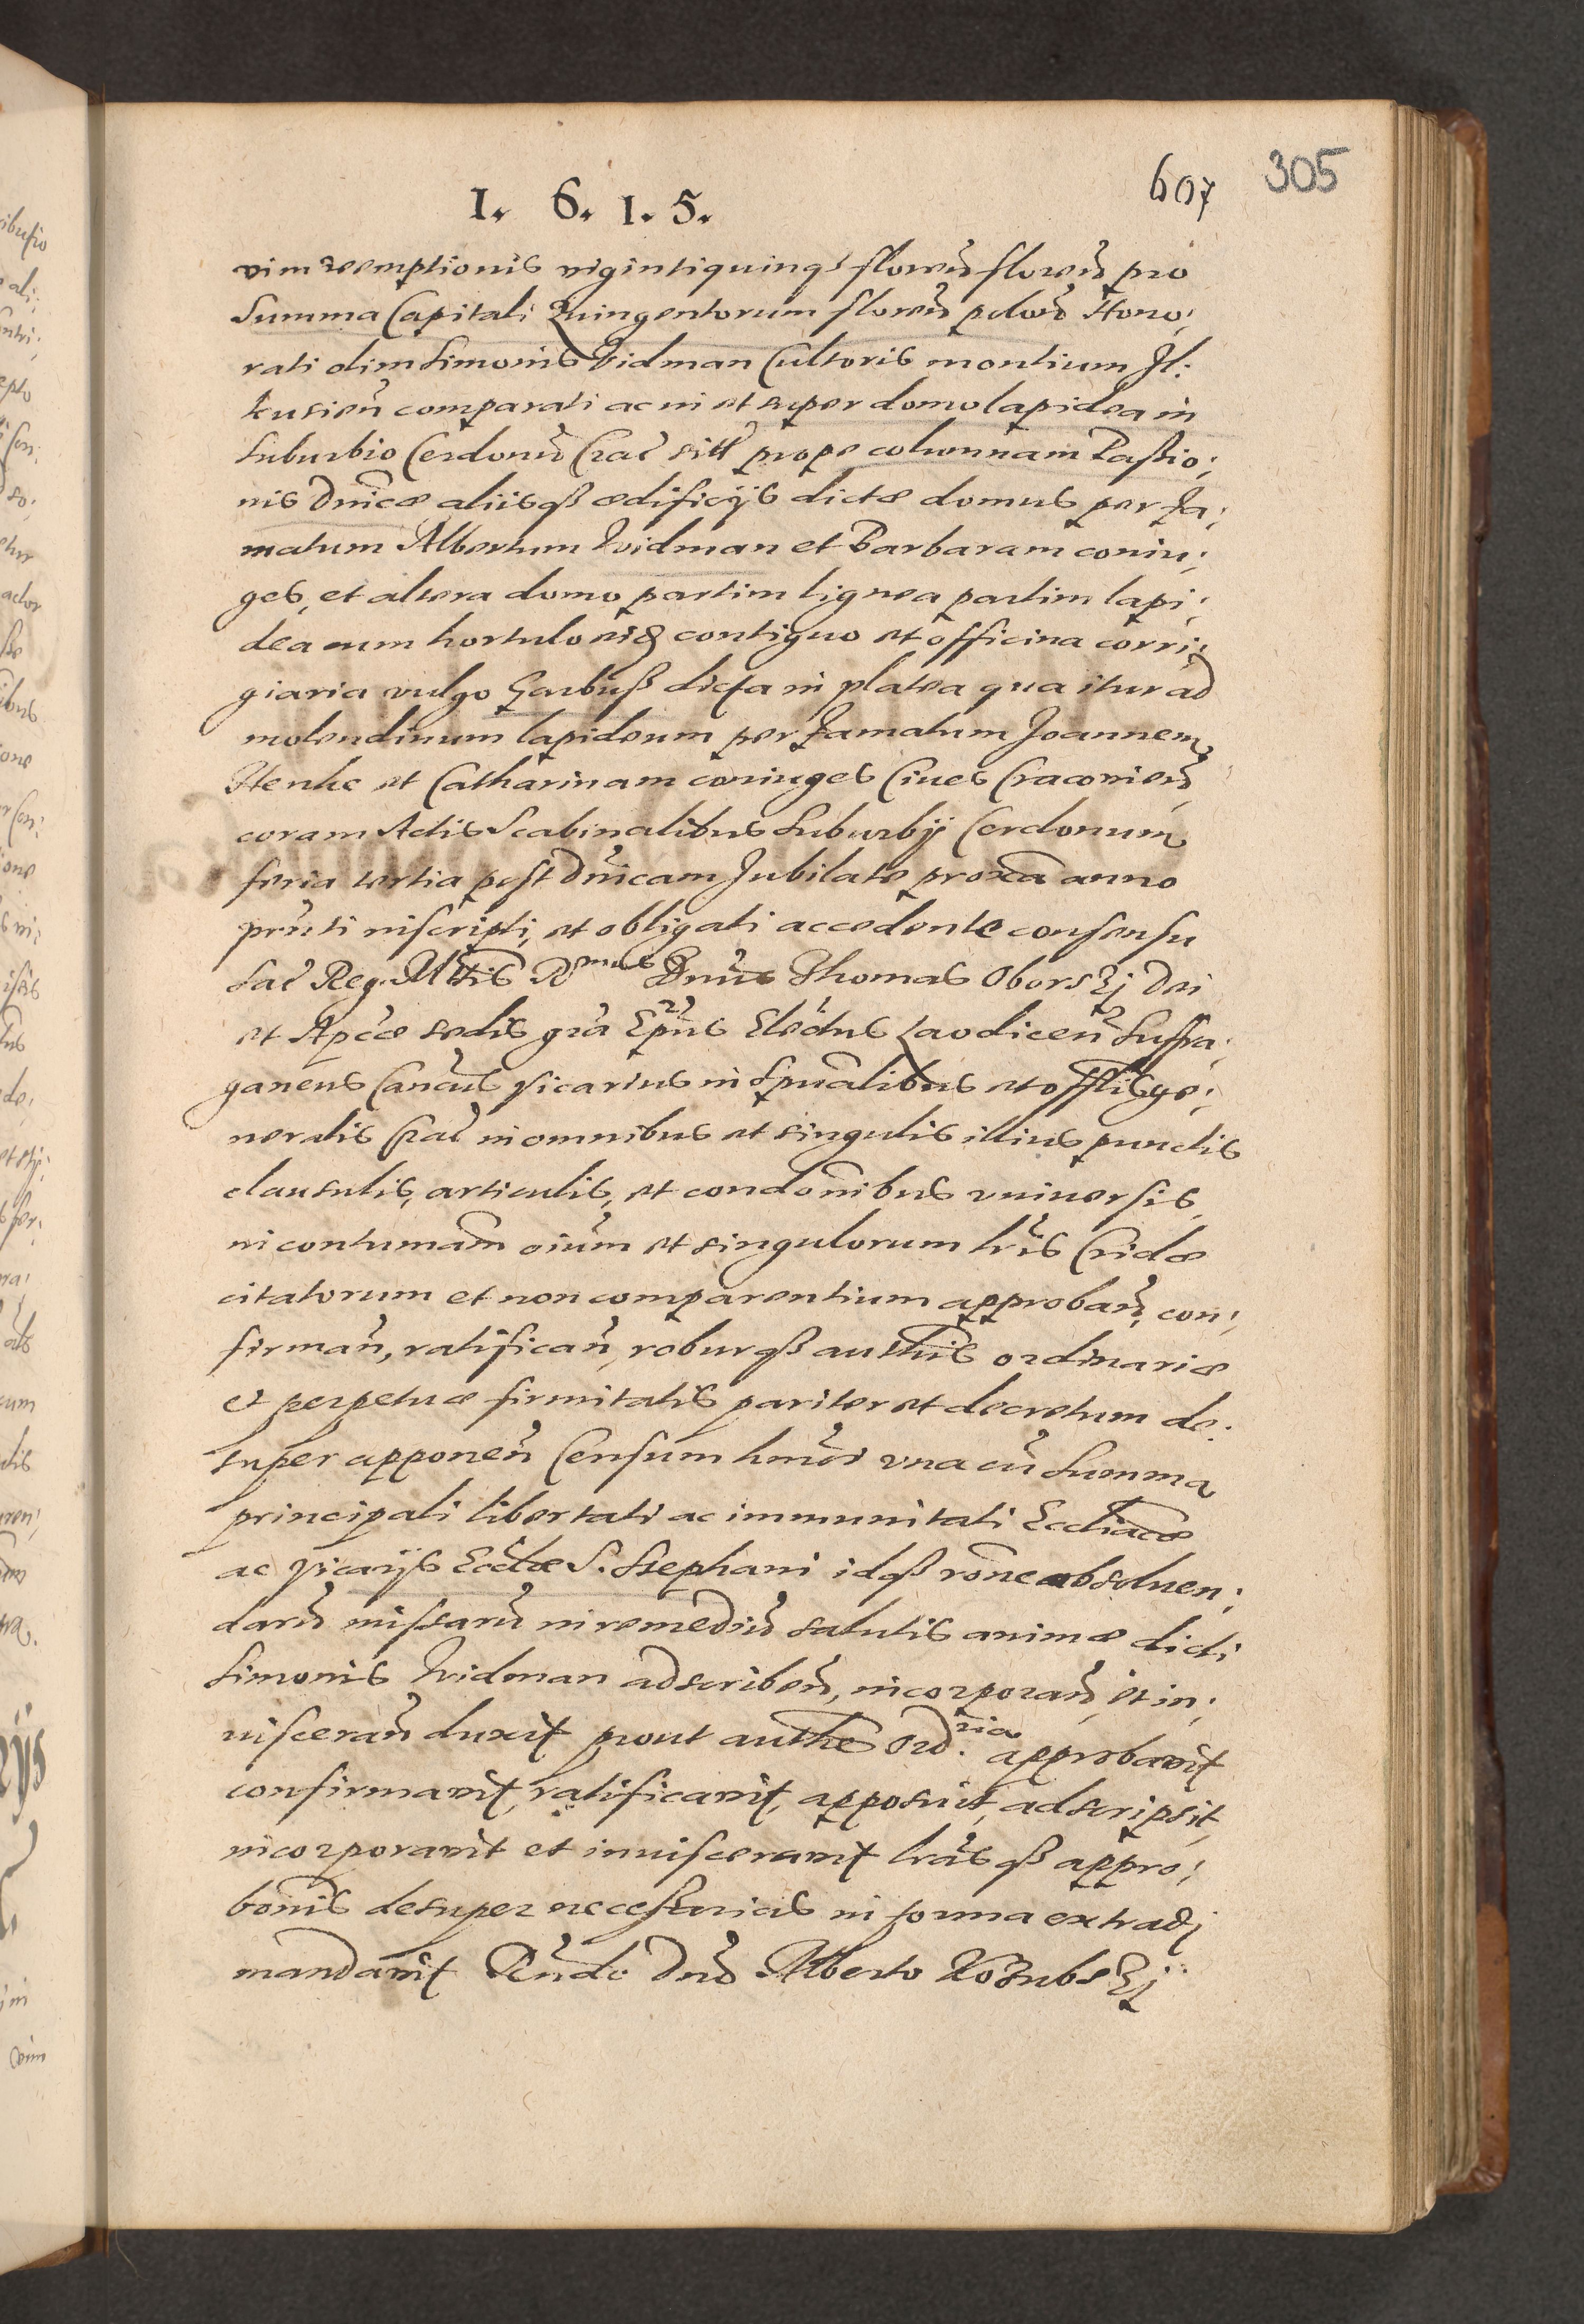 1. 6. 1. 5.
607 305
vim reemptionis vigintiquinq; floreñ floreñ pro
Summa Capitali Quingentorum floreñ pelõrũ Hono;
rati olim Simonis Vidman Cultoris montium Jl:
kusieñ comparati ac in et super domo lapidea in
suburbio Cerdonũ Crac̃ sitt̃ prope columnam Paßio;
nis Dnicæ aliisqß ædificijs dictæ domus per Fa;
matum Albertum Widman et Barbaram coniu;
ges, et altera domo partim lignea partim lapi;
dea cum hortulo eid contiguo et officina corri;
giaria vulgo Garbuß dicta in platea qua itur ad
molendinum lapideum per Famatum Joannem
Henke et Catharinam coniuges Ciues Cracouieñ
coram Actis Scabinalibus Suburbij Cerdonum
feria tertia post Dñicam Jubilate proxa anno
prñti inscripti, et obligati accedente consensu
Sac̃ Reg. Mttis R̃mus Dnũs Thomas Oborskj Dei
et Apcæ sedis grã Epũs Electus Laodiceñ Suffra;
ganeus Cancus Vicarius in Spualibus et offtis ge;
neralis Crac̃ in omnibus et singulis illius punctis
clausulis, articulis, et condonibus vniuersis,
in contumam oium et singulorum lrĩs Cridæ
citatorum et non comparentium approbañ, con;
firmañ, ratificañ, roburqß authtis ordinariæ
et perpetuæ firmitatis pariter et decretum de;
super apponeñ Censum hmõi vna cũ Summa
principali libertati ac immunitati Ecclĩacæ
ac Vicarijs Ecclæ S. Stephani idqß rone absoluen;
darũ missarũ in remediũ salutis animæ dicti
Simonis Widman adscribeñ, incorporañ, et in;
uisceran̄ duxit prout authe Ord.ria approbauit
confirmauit, ratificauit, apposuit, adscripsit,
incorporauit et inuiscerauit lrãs qß appro;
bonis desuper necessarias in forma extradj
mandauit Rñdo Dño Alberto